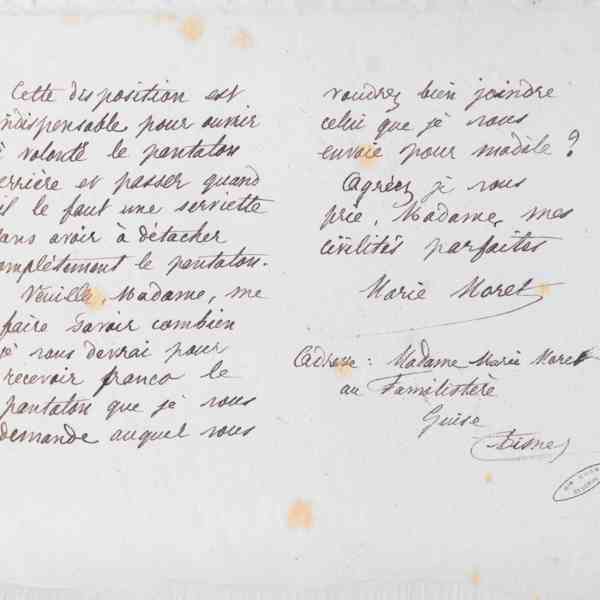 Cette disposition est
indispensable pour ouvrir
à volonté le pantalon
errière et passer quand
il le faut une serviette
sans avoir à détacher
complètement le pantalon.
Veuillez, Madame, me
faire savoir combien
je vous devrai pour
recevoir franco le
pantalon que je vous
demande auquel vous
voudrez bien joindre
celui que je vous
envoie pour modèle ?
Agréez je vous
prie, Madame, mes
civilités parfaites
Marie Moret
Cadresse : Madame Marie Moret
au Familistère
Guise
(Aisne)